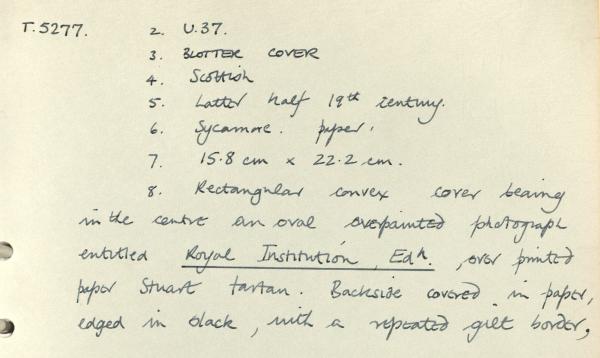 T.5277. 2. U.37.
3. BLOTTER COVER
4. Scottish
5. Latter half 19th century.
6. Sycamore. paper.
7. 15.8 cm x 22.2 cm.
8. Rectangular convex cover bearing
in the centre an oval overpainted photograph
entitled Royal Institution, Edn. , over printed
paper Stuart tartan. Backside covered in paper,
edged in black, with a repeated gilt border,